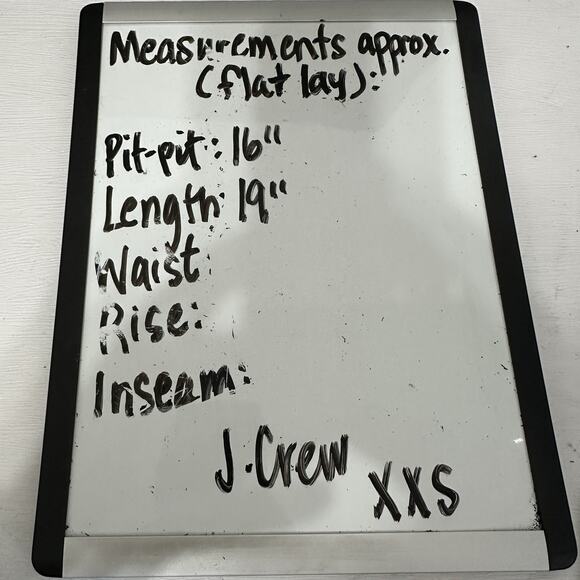 Measurements approx.
(flat lay):
Pit-pit: 16"
Length: 19"
Waist:
Rise:
Inseam:
J.Crew
XXS